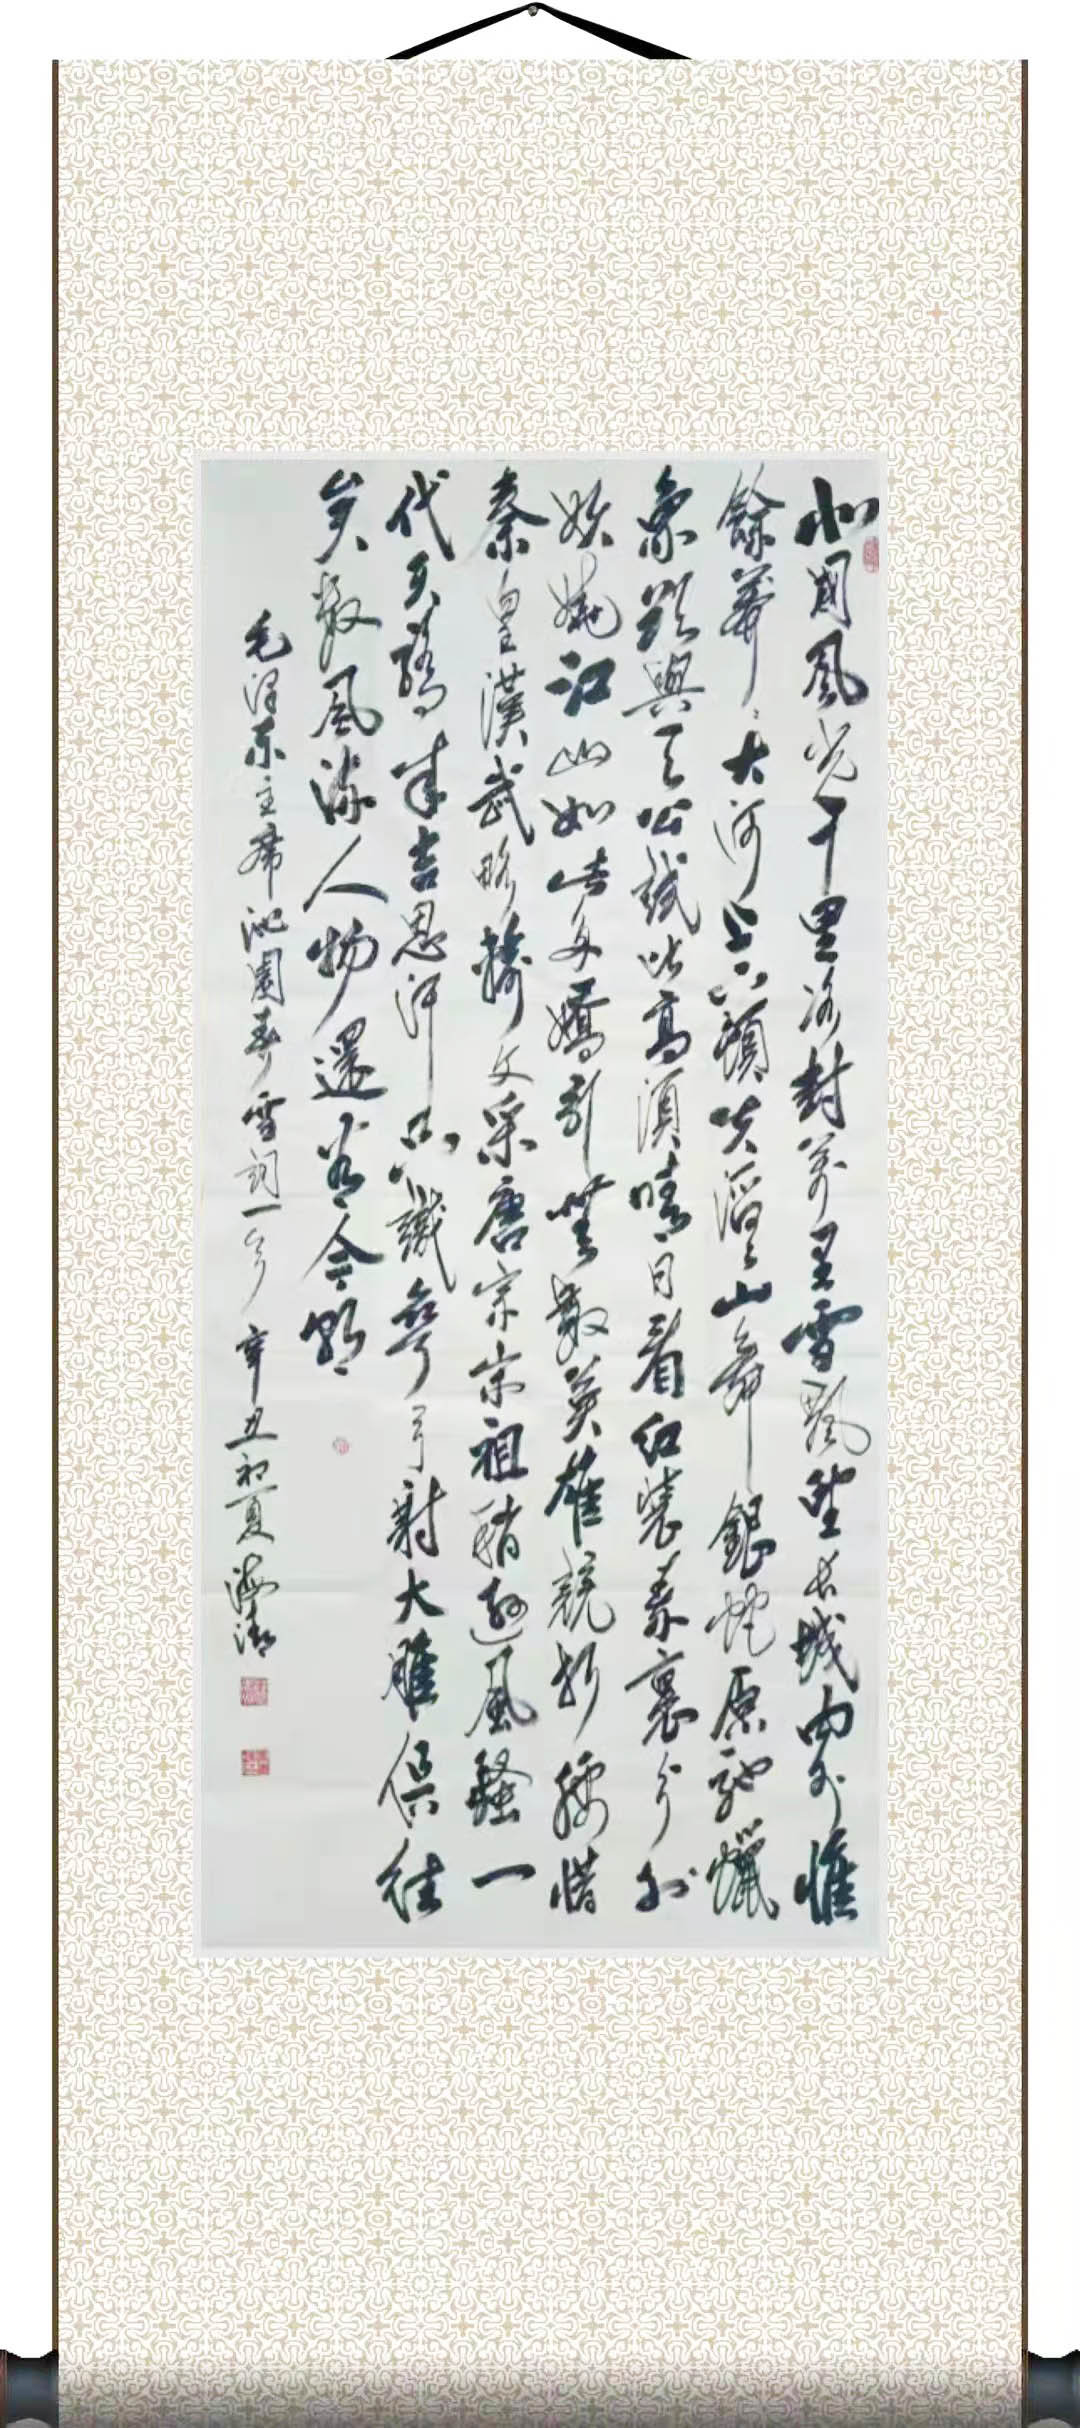 北國風光千里冰封萬里雪飄望長城內外惟
餘莽莽大河上下頓失滔滔山舞銀蛇原馳蠟
象欲與天公試比高須晴日看紅裝素裹分外
妖嬈江山如此多嬌引無數英雄競折腰惜
秦皇漢武略輸文采唐宗宋祖稍遜風騷一
代天驕成吉思汗只識彎弓射大雕俱往
矣數風流人物還看今朝
毛澤東主席沁園春雪詞一首 辛丑初夏 海清